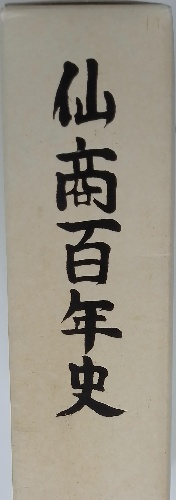 仙商百年史